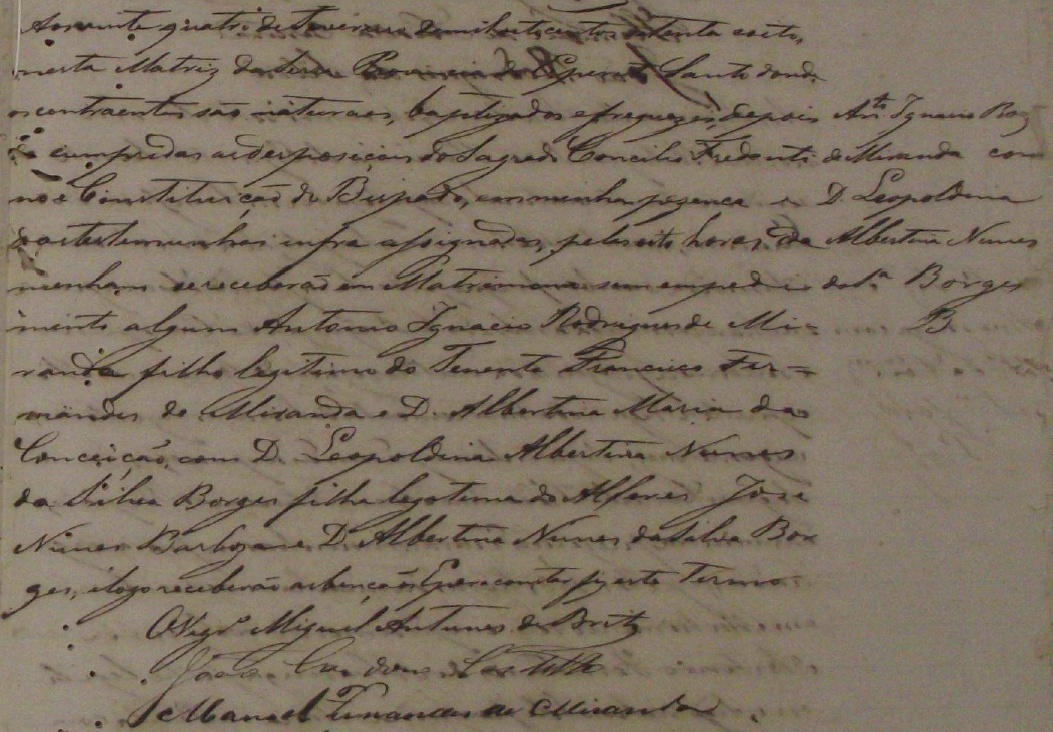 Aos vinte quatro de Fevereiro de mil oito centos setenta e oito,
nesta Matriz da Serra Provincia do Espirito Santo donde
os contraentes são naturaes, baptizados e freguezes, depois
cumpridas as desposiçois do Sagrado Concilio Tredentino
no e Constituição do Bispado, em minha prezença e
das testemunhas infra assignadas, pelas oito horas da
menham se receberão em Matrimonio sem empedi=
mento algum Antonio Ignacio Rodrigues de Mi=
randa filho legitimo do Tenente Francisco Fer=
nandes de Miranda e D. Albertina Maria da
Conceição, com D. Leopoldina Albertina Nunes
da Silva Borges filha legitima do Alferes José
Nunes Barboza e D. Albertina Nunes da Silva Bor
ges, e logo receberão as bençãos. E para constar fiz este Termo.
O Vigrº Miguel Antunes de Brito
João
Manoel Fernandes de Miranda
Antº Ignacio Roz
de Miranda com
D. Leopoldina
Albertina Nunes
da Sª Borges
B